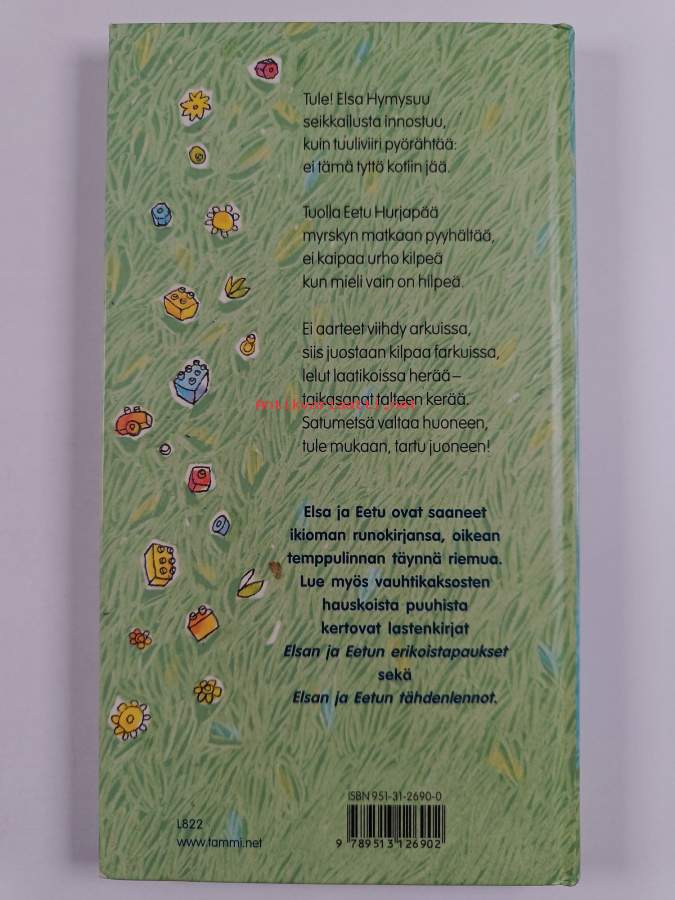 Tule! Elsa Hymysuu
seikkailusta innostuu,
kuin tuuliviiri pyörähtää:
ei tämä tyttö kotiin jää.
Tuolla Eetu Hurjapää
myrskyn matkaan pyyhältää,
ei kaipaa urho kilpeä
kun mieli vain on hilpeä.
Ei aarteet viihdy arkuissa,
siis juostaan kilpaa farkuissa,
lelut laatikoissa herää–
taikasanat talteen kerää.
Antikvariaatti.net
Satumetsä valtaa huoneen,
tule mukaan, tartu juoneen!
Elsa ja Eetu ovat saaneet
ikioman runokirjansa, oikean
temppulinnan täynnä riemua.
Lue myös vauhtikaksosten
hauskoista puuhista
kertovat lastenkirjat
Elsan ja Eetun erikoistapaukset
sekä
Elsan ja Eetun tähdenlennot.
ISBN 951-31-2690-0
L822
www.tammi.net
9 789513 126902